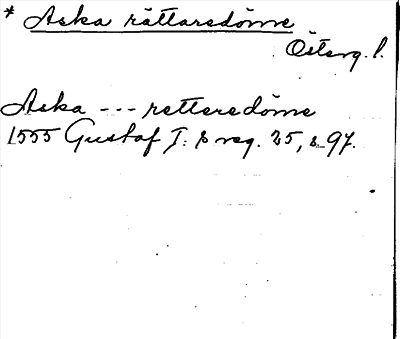 * Aska rättaredöme
Österg. l.
Aska --- rettaredöme
1555 Gustaf I:s reg. 25, s. 97.